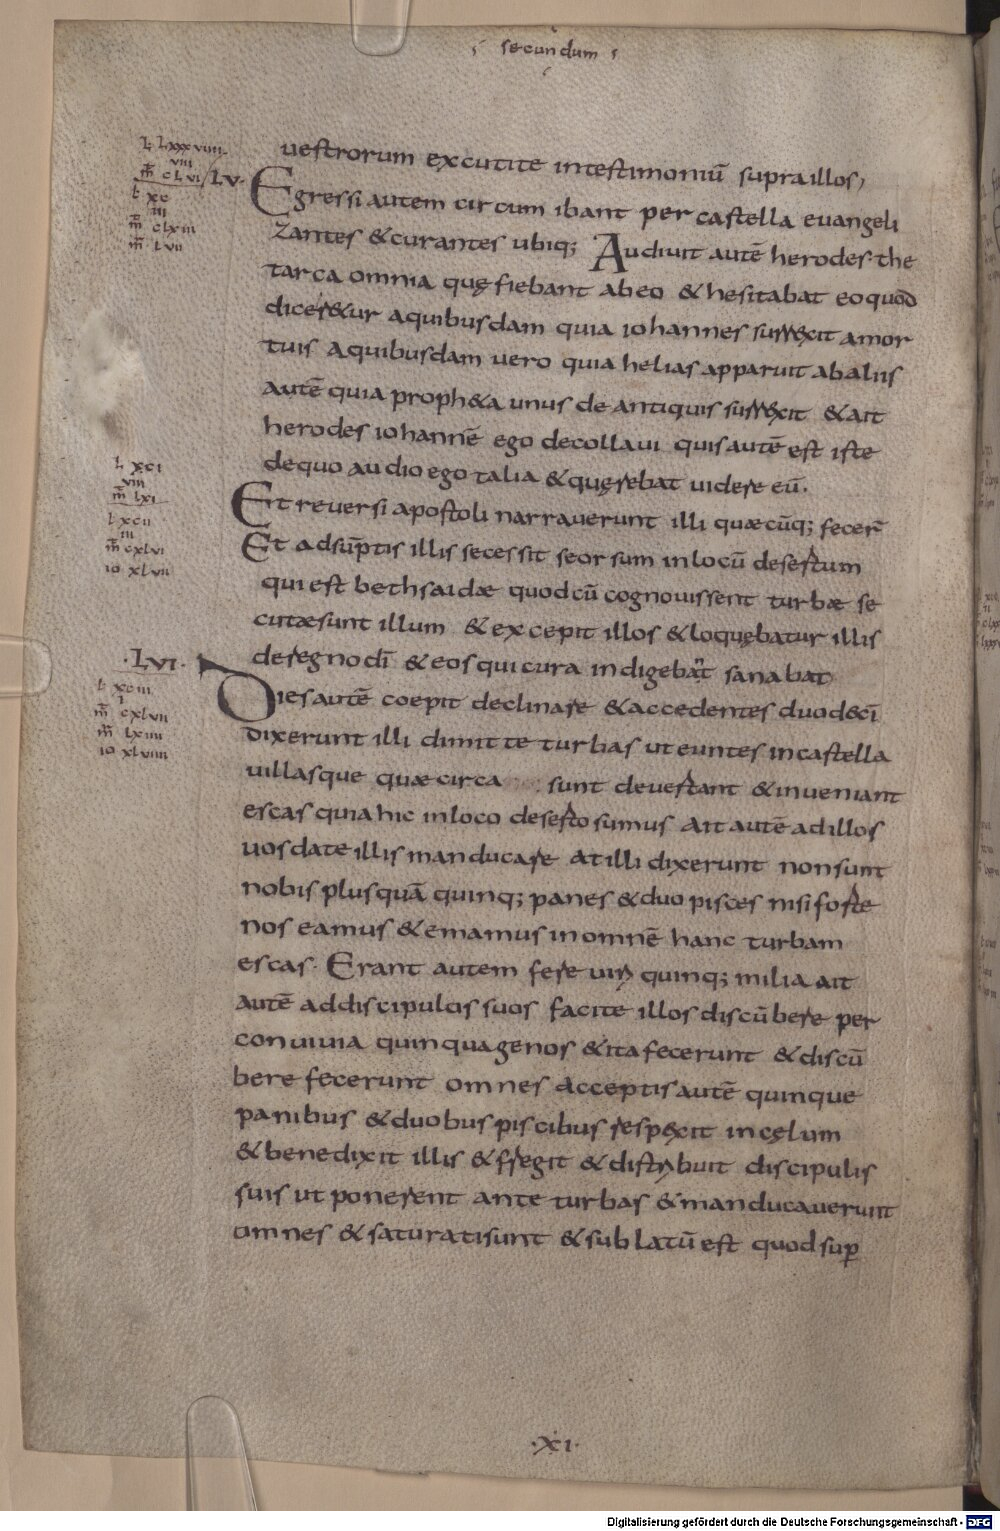 secundum
L LXXXVIIII
VIII
m̄ CLVI LV·
L XC
III
m̄ CLXIII
m̄ LVII
uestrorum excutite intestimoniū supraillos,
Egressi autem circum ibant per castella euangeli
zantes &curantes ubiq; Audiuit autē herodes the
tarca omnia quę fiebant abeo & hesitabat eo quod
dicer&ur aquibusdam quia iohannes surrexit amor
tuis aquibusdam uero quia helias apparuit abaliis
autē quia proph&a unus de antiquis surrexit & ait
herodes iohannē ego decollaui quis autē est iste
dequo audio ego talia &quęrebat uidere eū.
L XCI
VIII
m̄ LXI
L XCII
III
m̄ CXLVI
IO XLVII
Et reuersi apostoli narrauerunt illi quæcūq; fecer̄
Et adsūptis illis secessit seorsum inlocū desertum
qui est bethsaidæ quodcū cognouissent turbæ se
cutæsunt illum & excepit illos &loquębatur illis
deregno dī & eos qui cura indigebant sanabat
·LVI·
L XCIII
I
m̄ CXLVII
m̄ LXIIII
IO XLVIIII
Dies autē coepit declinare &accedentes duod&cī
dixerunt illi dimitte turbas ut euntes incastella
uillasque quæcirca sunt deuertant &inueniant
escas quia hic inloco deserto sumus Ait autē adillos
uos date illis manducare at illi dixerunt nonsunt
nobis plusquā quinq; panes &duo pisces nisi forte
nos eamus &emamus inomnē hanc turbam
escas· Erant autem fere uiri quinq; milia ait
autē addiscipulos suos facite illos discūbere per
conuiuia quinquagenos &ita fecerunt &discū
bere fecerunt omnes Acceptis autē quinque
panibus &duobus piscibus respexit incęlum
&benedixit illis &fregit &distribuit discipulis
suis ut ponerent ante turbas &manducauerunt
omnes &saturatisunt &sublatū est quod sup̄
·XI·
Digitalisierung gefördert durch die Deutsche Forschungsgemeinschaft - DFG